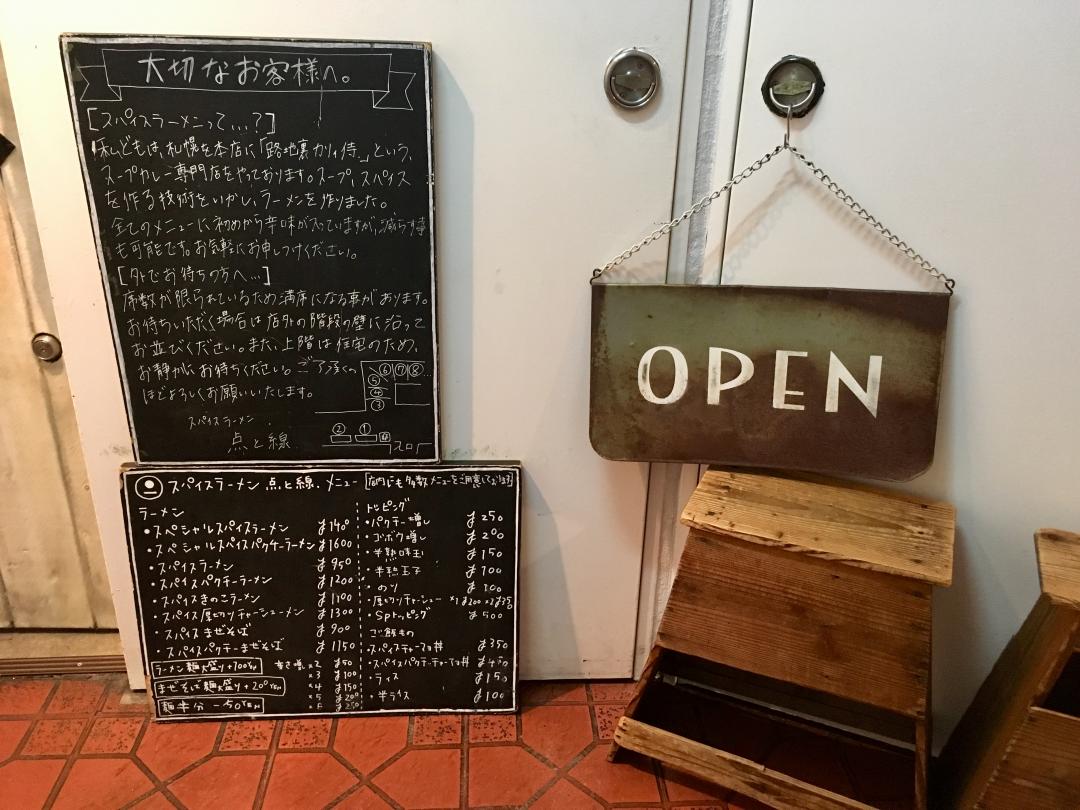 大切なお客様へ。
[スパイスラーメンって…?]
私どもは、札幌を本店に「路地裏カリィ侍.」という、
スープカレー専門店をやっております。スープ、スパイス
を作る技術をいかし、ラーメンを作りました。
全てのメニューに初めから辛味が入っていますが、減らす事
も可能です。お気軽にお申しつけください。
[外でお待ちの方へ…]
席数が限られているため満席になる事があります。
お待ちいただく場合は店外の階段の壁に沿って
お並びください。また、上階は住宅のため、
お静かにお待ちください。ご了承の
ほどよろしくお願いいたします。
スパイスラーメン
点と線.
⑤ ⑥ ⑦ ⑧ …
④
③
② ①
入口
OPEN
スパイスラーメン 点と線. メニュー [店内にも多数メニューをご用意しております]
ラーメン
・スペシャルスパイスラーメン ¥1400
・スペシャルスパイスパクチーラーメン ¥1600
・スパイスラーメン ¥950
・スパイスパクチーラーメン ¥1200
・スパイスきのこラーメン ¥1100
・スパイス厚切りチャーシューメン ¥1300
・スパイスまぜそば ¥900
・スパイスパクチーまぜそば ¥1150
ラーメン麺大盛り+100YEN
まぜそば麺大盛り+200YEN
麺半分 -50YEN
辛さ増し ×2 ¥50
×3 ¥100
×4 ¥150
×5 ¥200
¥250
トッピング
・パクチー増し ¥250
・ゴボウ増し ¥200
・半熟味玉 ¥150
・半熟玉子 ¥100
・のり ¥100
・厚切りチャーシュー ×1 ¥200 ×2 ¥350
・SPトッピング ¥500
ご飯もの
・スパイスチャーマヨ丼 ¥350
・スパイスパクチーチャーマヨ丼
・ライス ¥150
・半ライス ¥100